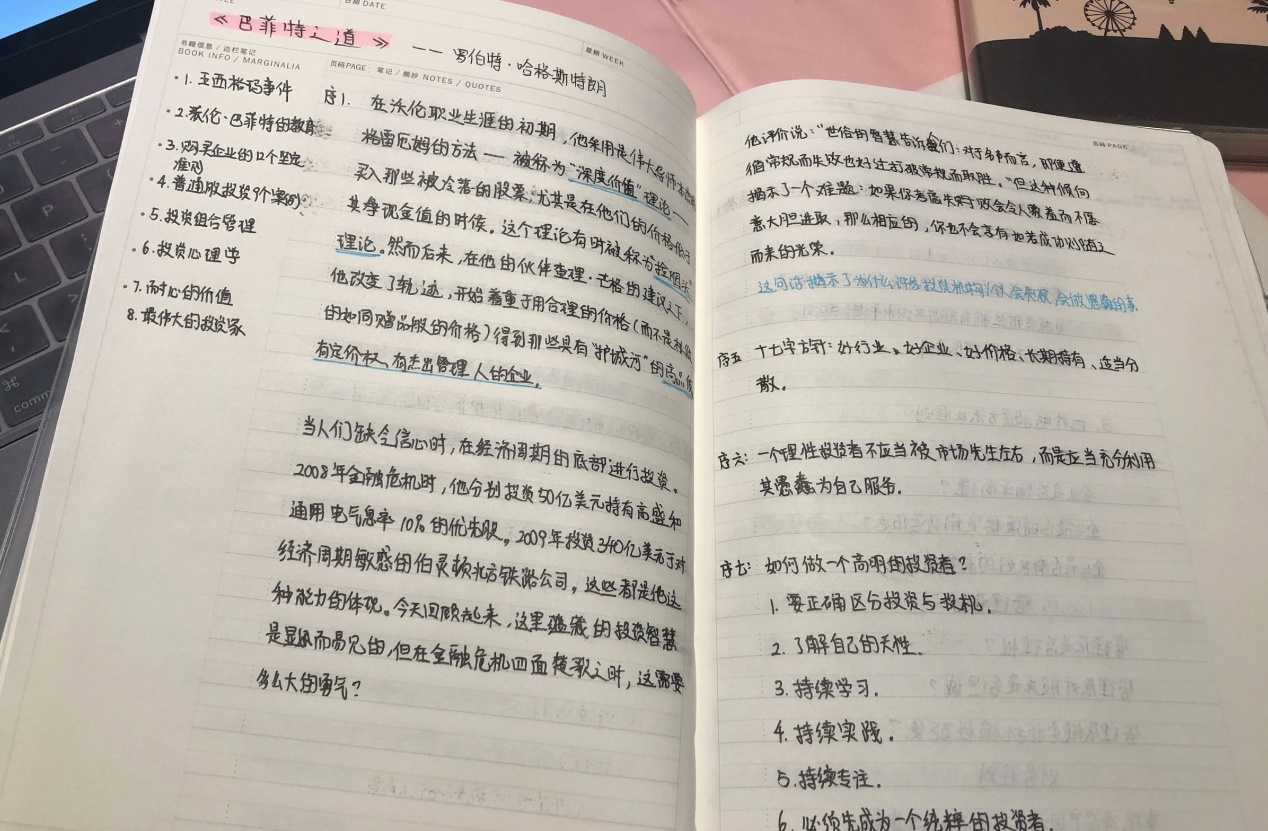 日期 DATE
《巴菲特之道》 —— 罗伯特·哈格斯特朗
星期 WEEK
书籍信息 / 边栏笔记
BOOK INFO / MARGINALIA
页码PAGE 笔记 / 摘抄 NOTES / QUOTES
·1. 五西格玛事件
·2. 沃伦·巴菲特的教育
·3. 购买企业的12个坚定
准则
·4. 普通股投资9个案例
·5. 投资组合管理
·6. 投资心理学
·7. 耐心的价值
8. 最伟大的投资家
序1. 在沃伦职业生涯的初期，他采用是伟大导师本
格雷厄姆的方法 —— 被称为“深度价值”理论 ——
买入那些被冷落的股票，尤其是在他们的价格低于
其净现金值的时候。这个理论有时被称为捡烟头
理论。然而后来，在他的伙伴查理·芒格的建议之下，
他改变了轨迹，开始着重于用合理的价格（而不是
的如同赠品般的价格）得到那些具有“护城河”的
有定价权、有杰出管理人的企业。
当人们缺乏信心时，在经济周期的底部进行投资。
2008年金融危机时，他分别投资50亿美元持有高盛和
通用电气息率10%的优先股。2009年投资340亿美元于对
经济周期敏感的伯灵顿北方铁路公司，这些都是他这
种能力的体现。今天回顾起来，这里蕴藏的投资智慧
是显而易见的，但在金融危机四面楚歌之时，这需要
多么大的勇气？
页码 PAGE
他评价说：“世俗的智慧告诉我们：对于声而言，即便遵
循常规而失败也好过打破常规而取胜。”但这种倾向
揭示了一个难题：如果你考虑失败会令人羞而不愿
意大胆进取，那么相应的，你也不会享有如若成功
而来的光荣。
这句话揭示了为什么许多投资机构/个人会失败 会做愚蠢的事
序五 十七字方针：好行业、好企业、好价格、长期持有、适当分
散。
序六：一个理性投资者不应当被市场先生左右，而是应当充分利用
其愚蠢为自己服务。
序七：如何做一个高明的投资者？
1. 要正确区分投资与投机。
2. 了解自己的天性。
3. 持续学习。
4. 持续实践。
5. 持续专注。
6. 必须先成为一个纯粹的投资者。